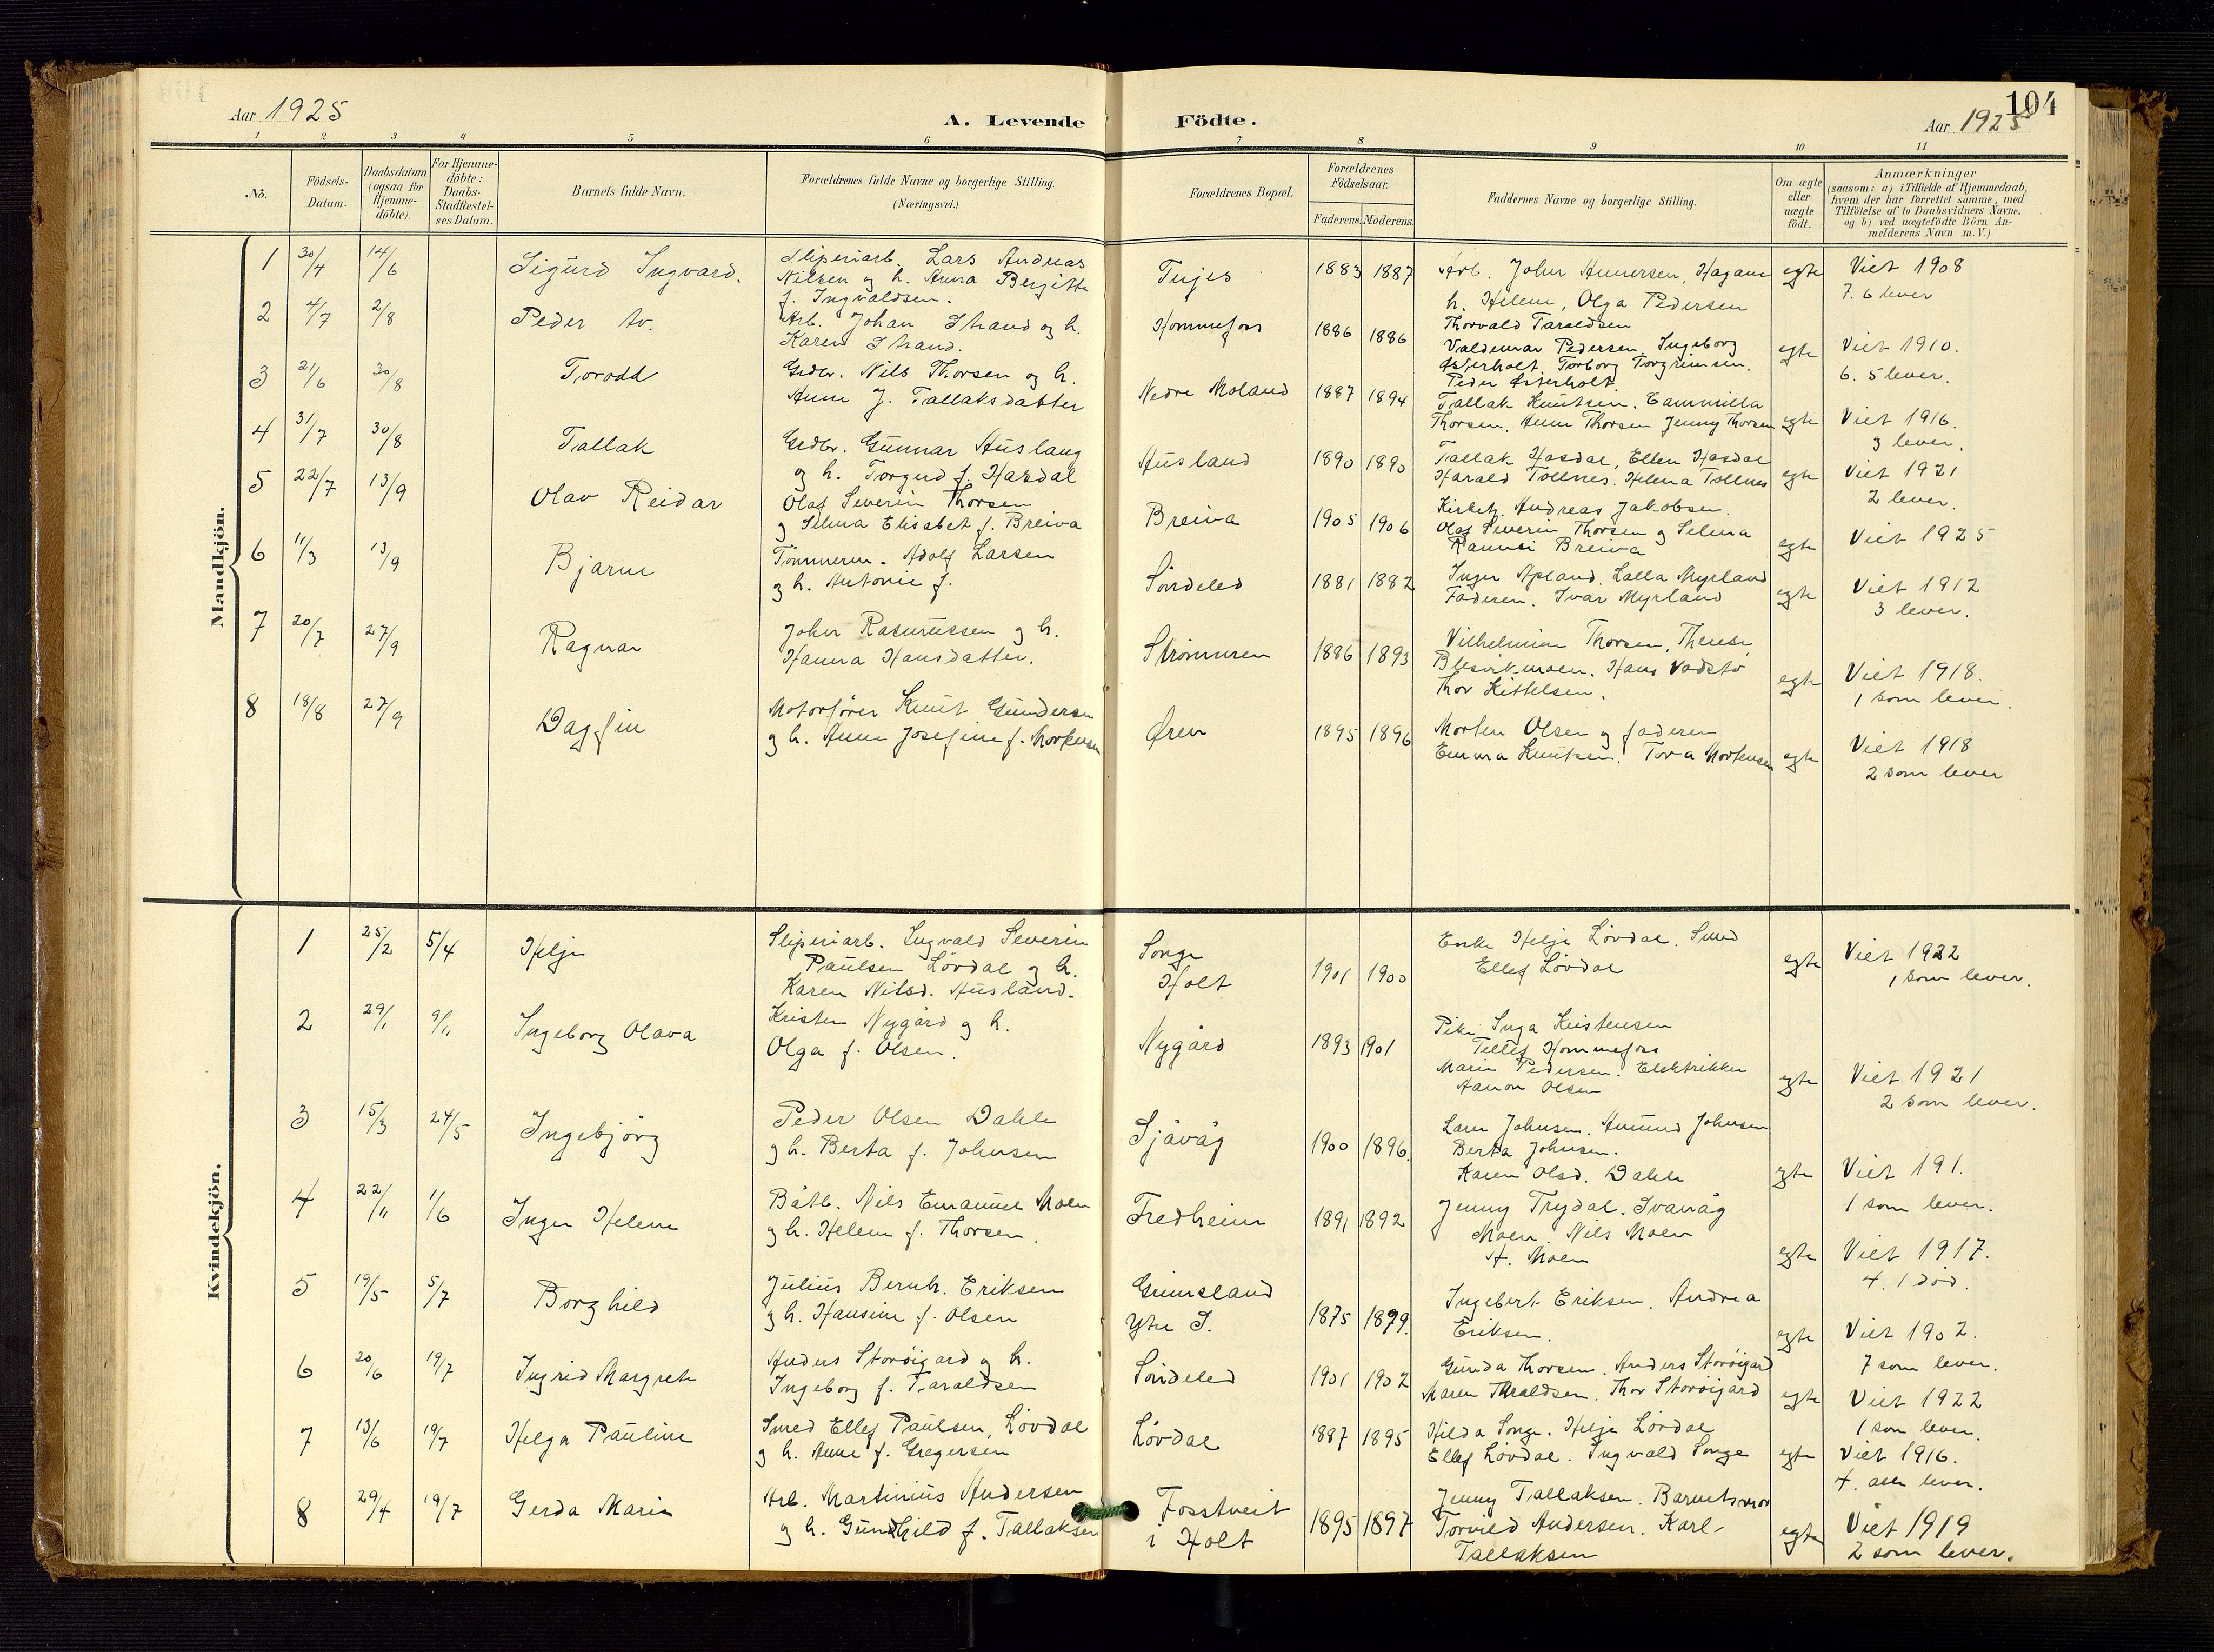 104
Aar 1925
A. Levende Födte.
Aar 1925
1 2 3 4 5 6 7 8 9 10 11
No.
Födsels-Datum.
Daabsdatum (ogsaa for Hjemme-döbte).
For Hjemme-döbte: Daabs-Stadfæstel-ses Datum.
Barnets fulde Navn.
Forældrenes fulde Navne og borgerlige Stilling.
(Næringsvei.)
Forældrenes Bopæl.
Forældrenes Födselsaar.
Faderens. Moderens.
Faddernes Navne og borgerlige Stilling.
Om ægte eller uægte födt.
Anmærkninger
(saasom: a) i Tilfælde af Hjemmedaab,
hvem der har forrettet samme, med
Tilföielse af to Daabsvidners Navne,
og b) ved uægtefödte Börn An-
melderens Navn m. V.)
Mandkjön.
1 30/4 14/6 Sigurd Ingvard. Sliperiarb. Lars Andreas
Nilsen og h. Anna Bergitte
f. Ingvaldsen.
1883 1887 Arb. John
h. Helene, Olga Pedersen
Thorvald Taraldsen
egte Viet 1908
7. 6 lever
2 4/7 2/8 Peder Arb. Johan Strand og h.
Karen Strand.
Hommefos 1886 1886 Valdemar Pedersen, Ingeborg
Østerholt, Torborg Torgrimsen.
Peder Østerholt.
egte Viet 1910.
6. 5 lever.
3 21/6 30/8 Torodd Grdbr. Nils Thorsen og h.
Anne J. Tallaksdatter
Nedre Moland 1887 1894 Tallak Knutsen.
Thorsen, Anne Thorsen Jenny Thorsen
egte Viet 1916.
3 lever.
4 31/7 30/8 Tallak Grdbr. Gunnar Ausland
og h. Torgud f. Hasdal
Ausland 1890 1890 Tallak Hasdal, Ellen Hasdal
Harald Tollnes. Helena Tollnes
egte Viet 1921
2 lever.
5 22/7 13/9 Olav Reidar Olaf Severin Thorsen
og Selma Elisabet f. Breiva
Breiva 1905 1906 Andreas Jakobsen.
Olaf Severin Thorsen og Selma
Breiva
egte Viet 1925
6 11/3 13/9 Bjarne Tømmerm. Adolf Larsen
og h. Antonie f.
Søndeled 1881 1882 Inger Apland. Lalla Myrland
Faderen. Ivar Myrland
egte Viet 1912
3 lever.
7 20/7 27/9 Ragnar John Rasmussen og h.
Hanna Hansdatter.
Strømmen 1886 1893 Vilhelmine Thorsen, Therese
Blesvikmoen. Hans Vadstø
Thor Kittelsen.
egte Viet 1918.
1 som lever.
8 18/8 27/9 Dagfin Motorfører Knut Gundersen
og h. Anne Josefine f. Mortensen
Øren 1895 1896 Morten Olsen og faderen
Emma Knutsen. Tora Mortensen
egte Viet 1918
2 som lever
Kvindekjön.
1 25/2 5/4 Helje Sliperiarb. Ingvald Severin
Paulsen Løvdal og h.
Karen Nilsd. Ausland.
Songe
Holt
1901 1900 Enke Helje Løvdal. Smed
Ellef Løvdal
egte Viet 1922
1 som lever.
2 29/1 9/11 Ingeborg Olava Kristen Nygård og h.
Olga f. Olsen.
Nygård 1893 1901 Pike Inga Kristensen
Tellef Hommefos
Marie Pedersen. Elektriker
Aanon Olsen
egte Viet 1921
2 som lever.
3 15/3 24/5 Ingebjørg Peder Olsen Dahle
og h. Berta f. Johnsen
Sjåvåg 1900 1896. Johnsen. Amund Johnsen
Berta Johnsen.
Karen Olsd. Dahle
egte Viet 191.
1 som lever.
4 22/11 1/6 Inger Helene Båtb. Nils Emanuel Moen
og h. Helene f. Thorsen.
Fredheim 1891 1892 Jenny Trydal.
Moen. Nils Moen
A. Moen
egte Viet 1917.
4. 1 død.
5 19/5 5/7 Borghild Julius Bernh. Eriksen
og h. Hansine f. Olsen
Grimsland
Ytre S.
1875 1879. Ingebert Eriksen. Andrea
Eriksen.
egte Viet 1902.
7 som lever.
6 20/6 19/7 Ingrid Margrete Anders Storøigard og h.
Ingeborg f. Taraldsen
Søndeled 1901 1902 Gunda Thorsen. Anders Storøigard
Maren Taraldsen. Thor Storøigard
egte Viet 1922
1 som lever.
7 13/6 19/7 Helga Pauline Smed Ellef Paulsen, Løvdal
og h. Anne f. Gregersen
Løvdal 1887 1895 Hilda Songe. Helje Løvdal
Ellef Løvdal. Ingvald Songe
egte Viet 1916.
4. alle lever.
8 29/4 19/7 Gerda Marie Arb. Martinius Andersen
og h. Gundhild f. Tallaksen
Fosstveit
i Holt
1895 1897 Jenny Tallaksen. Barnets mor
Torvild Andersen. Karl
Tallaksen
egte Viet 1919
2 som lever.